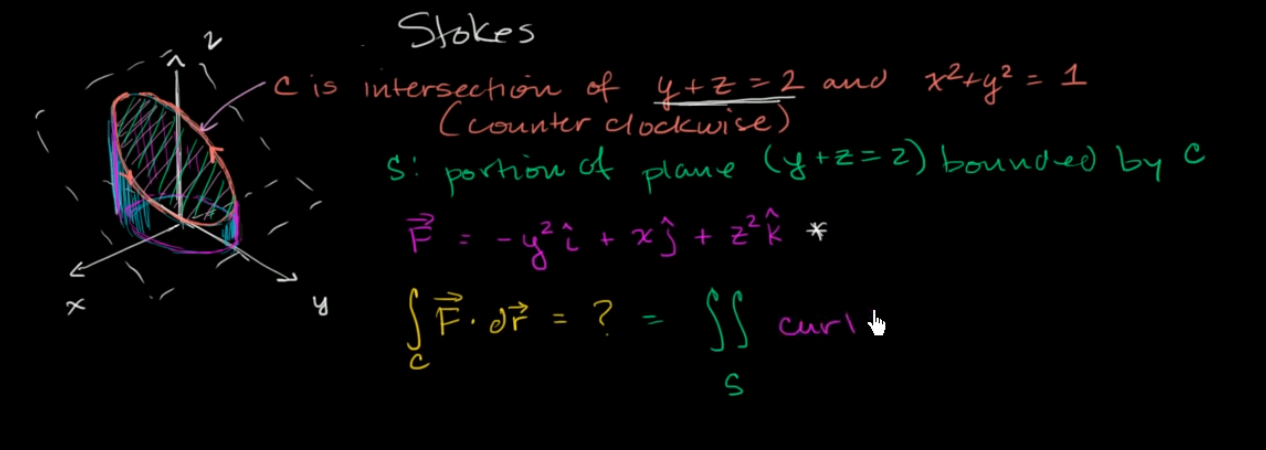 Stokes
z
C is intersection of y+z=2 and x²+y²=1
(counter clockwise)
S: portion of plane (y+z=2) bounded by C
F⃗ = -y²î + xĵ + z²k̂ *
x
y
∫_C F⃗·dr⃗ = ? = ∬_S curl